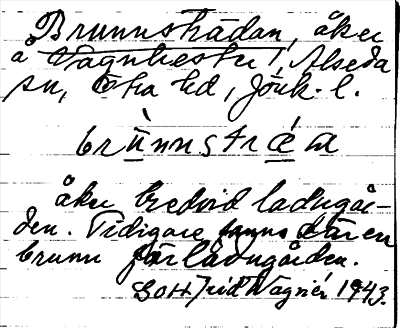 Brunnsträdan, åker
å Vagnhester, Alseda
sn, Ö-ra hd, Jönk. l.
brùnnstrǽa
åker bredvid ladugår-
den. Tidigare fanns där en
brunn för ladugården.
Gottfrid Wagnér 1943.